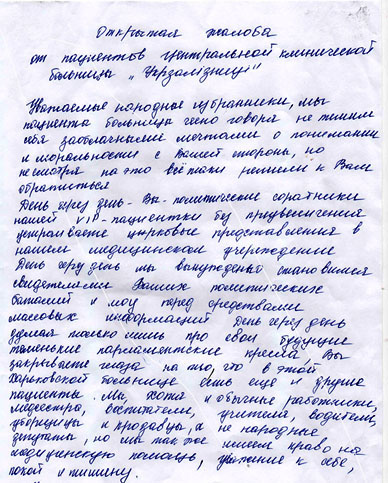 Открытая жалоба
от пациентов Центральной клинической
больницы "Укрзалізниці"
Уважаемые народные избранники, мы
пациенты больницы чесно говоря не тешим
себя заоблачными мечтами о понимании
и моральности с Вашей стороны, но
несмотря на это всё таки решили к Вам
обратиться
День через день - Вы - политические соратники
нашей VIP-пациентки без преувеличения
устраиваете цирковые представления в
нашем медицинском учереждение
День через день мы вынужденно становимся
свидетелями Ваших политических
баталий и шоу перед средствами
массовых информаций. День через день
думая только лишь про свои будущие
тепленькие парламентские кресла Вы
закрываете глаза на то, что в этой
Харьковской больнице есть еще и другие
пациенты. Мы, хотя и обычные работники,
медсестры, воспитатели, учителя, водители,
уборщицы и продавцы, а не народные
депутаты, но мы так же имеем право на
медицинскую помощь, уважение к себе,
покой и тишину.